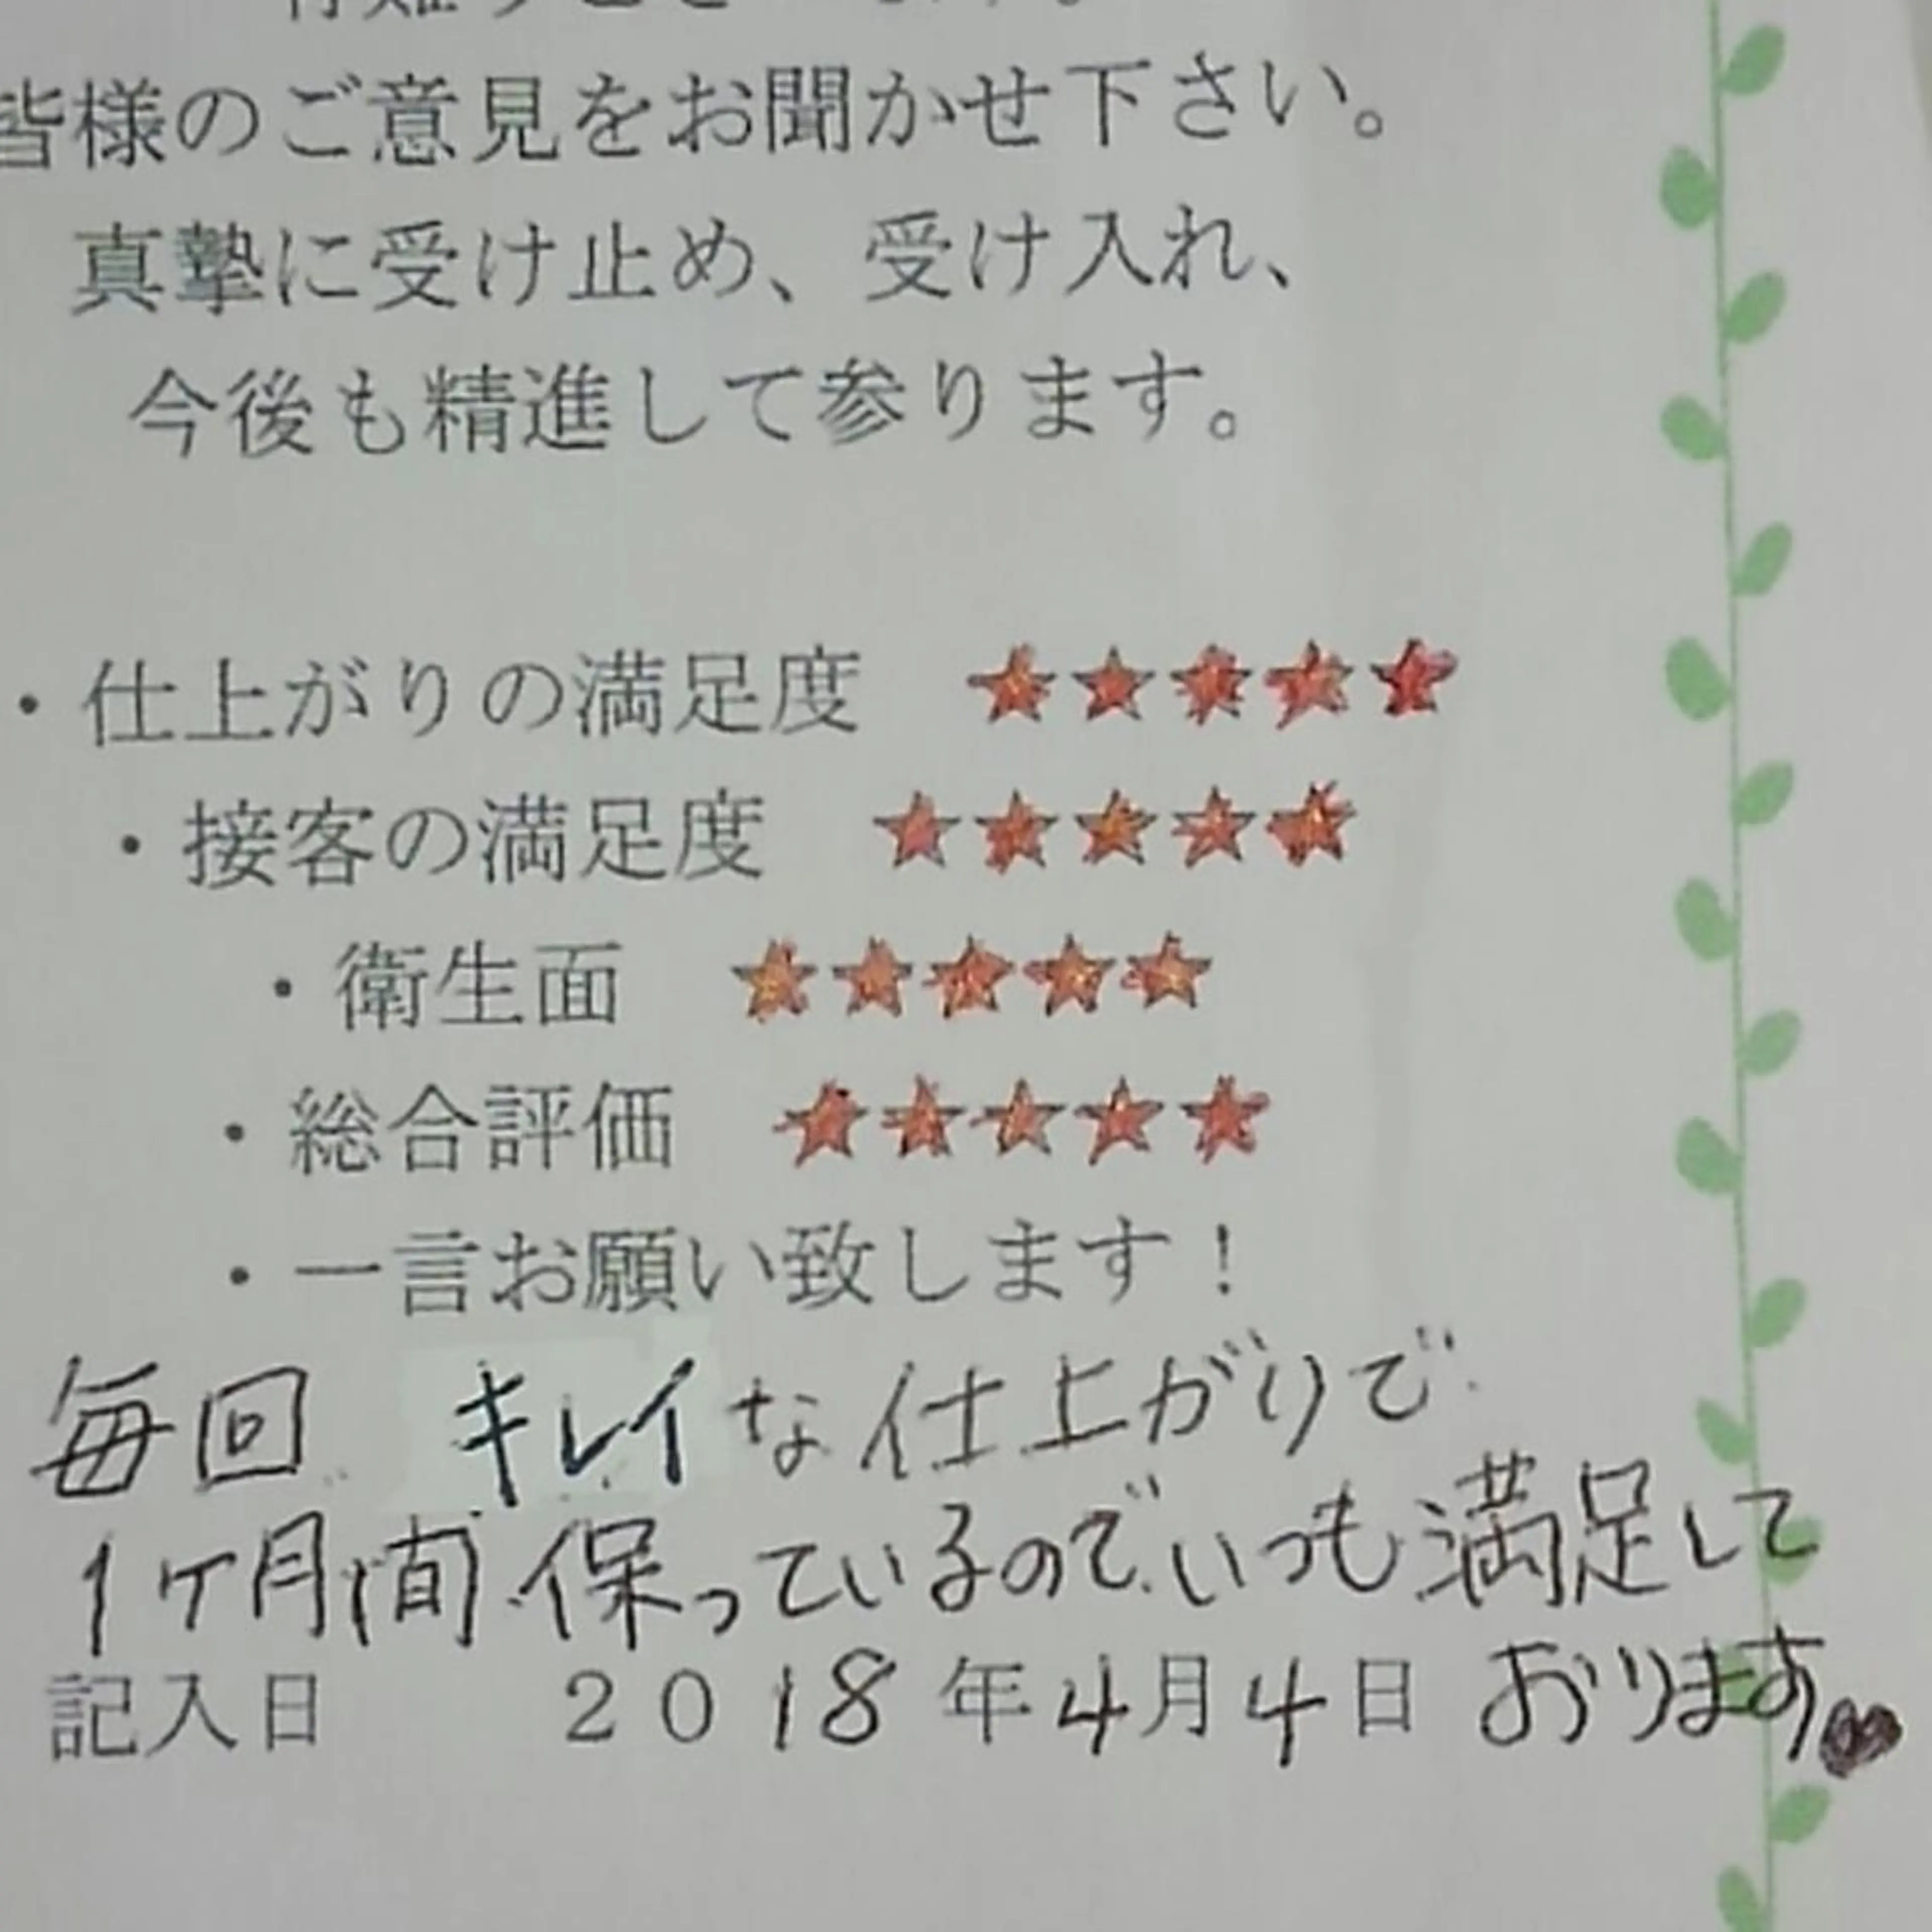 皆様のご意見をお聞かせ下さい。
真摯に受け止め、受け入れ、
今後も精進して参ります。
・仕上がりの満足度 ★★★★★
・接客の満足度 ★★★★★
・衛生面 ★★★★★
・総合評価 ★★★★★
・一言お願い致します！
毎回 キレイな仕上がりで
1ヶ月間保っているので、いつも満足して
おります
記入日 2018年4月4日